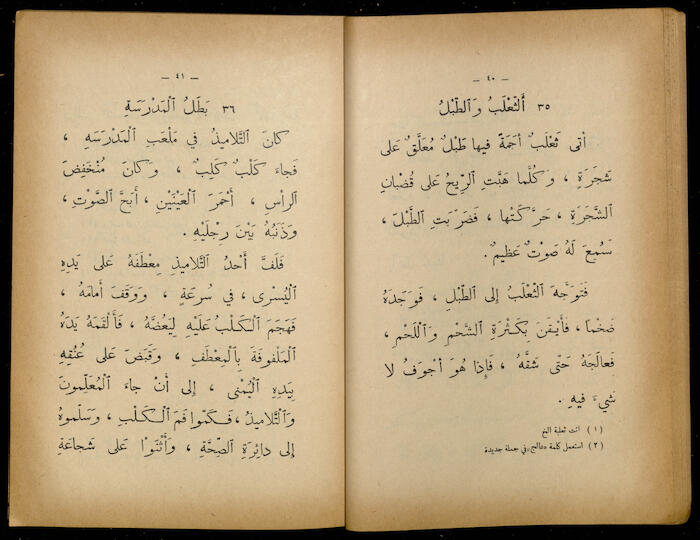 — ٤٠ —
٣٥ أَلثَّعْلَبُ وَٱلطَّبْلُ
أَتى ثَعْلَبٌ أَجَمَةً فيها طَبْلٌ مُعَلَّقٌ عَلى
شَجَرَةٍ ، وَكُلَّما هَبَّتِ ٱلرِّيحُ عَلى قُضْبانِ
ٱلشَّجَرَةِ ، حَرَّكَتْها ، فَضَرَبَتِ ٱلطَّبْلَ ،
سَمُعَ لَهُ صَوْتٌ عَظيمٌ .
فَتَوَجَّهَ ٱلثَّعْلَبُ إِلى ٱلطَّبْلِ ، فَوَجَدَهُ
ضَخْماً ، فَأَيْقَنَ بِكَثْرَةِ ٱلشَّحْمِ وَٱللَّحْمِ ،
فَعالَجَهُ حَتّى شَقَّهُ ، فَإِذا هُوَ أَجْوَفُ لا
شَيْءَ فيهِ .
(١) أتت ثعلبة الخ
(٢) استعمل كلمة «عالج» في جملة جديدة
— ٤١ —
٣٦ بَطَلُ ٱلْمَدْرَسَةِ
كانَ ٱلتَّلاميذُ في مَلْعَبِ ٱلْمَدْرَسَةِ ،
فَجاءَ كَلْبٌ كَلِبٌ ، وَكانَ مُنْخَفِضَ
ٱلرَّأْسِ ، أَحْمَرَ ٱلْعَيْنَيْنِ ، أَبَحَّ ٱلصَّوْتِ ،
وَذَنَبُهُ بَيْنَ رِجْلَيْهِ .
فَلَفَّ أَحَدُ ٱلتَّلاميذِ مِعْطَفَهُ عَلى يَدِهِ
ٱلْيُسْرى ، في سُرْعَةٍ ، وَوَقَفَ أَمامَهُ ،
فَهَجَمَ ٱلْكَلْبُ عَلَيْهِ لِيَعَضَّهُ ، فَأَلْقَمَهُ يَدَهُ
ٱلْمَلْفوفَةَ بِٱلْمِعْطَفِ ، وَقَبَضَ عَلى عُنُقِهِ
بِيَدِهِ ٱلْيُمْنى ، إِلى أَنْ جاءَ ٱلْمُعَلِّمونَ
وَٱلتَّلاميذُ ، فَكَمّوا فَمَ ٱلْكَلْبِ ، وَسَلَّموهُ
إِلى دائِرَةِ ٱلصِّحَّةِ ، وَأَثْنَوْا عَلى شَجاعَةِ